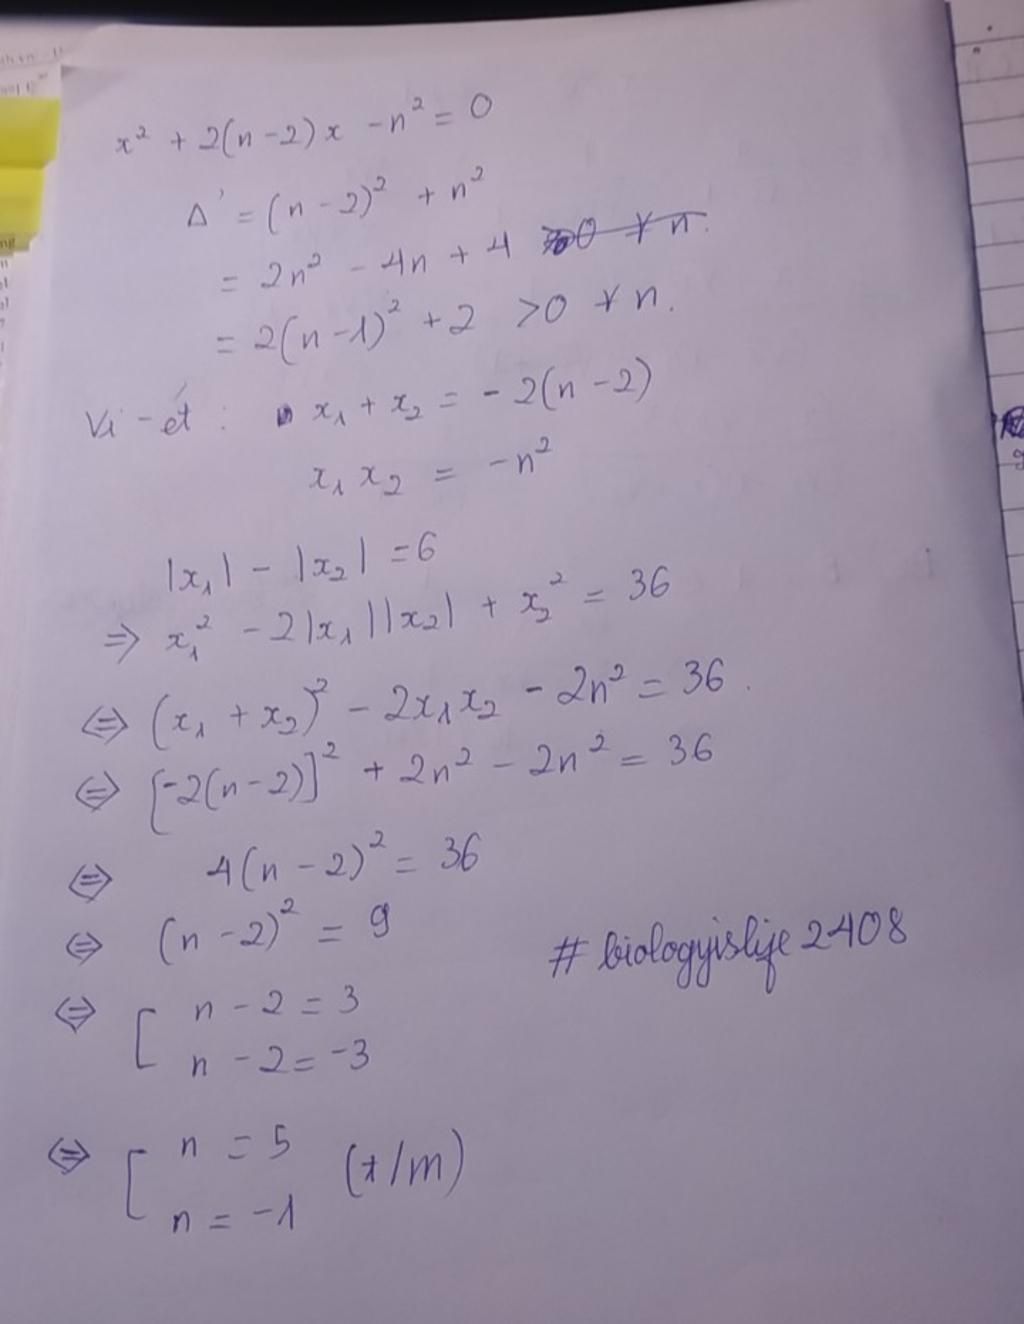 x² + 2(n-2)x - n² = 0
Δ' = (n-2)² + n²
= 2n² - 4n + 4
= 2(n-1)² + 2 >0 ∀n.
Vi-ét : x₁ + x₂ = -2(n-2)
x₁ x₂ = -n²
|x₁| - |x₂| = 6
⇒ x₁² - 2|x₁||x₂| + x₂² = 36
⇔ (x₁ + x₂)² - 2x₁x₂ - 2n² = 36.
⇔ [-2(n-2)]² + 2n² - 2n² = 36
⇔ 4(n-2)² = 36
⇔ (n-2)² = 9
# biologyislife2408
⇔ [ n - 2 = 3
n - 2 = -3
⇔ [ n = 5 (t/m)
n = -1